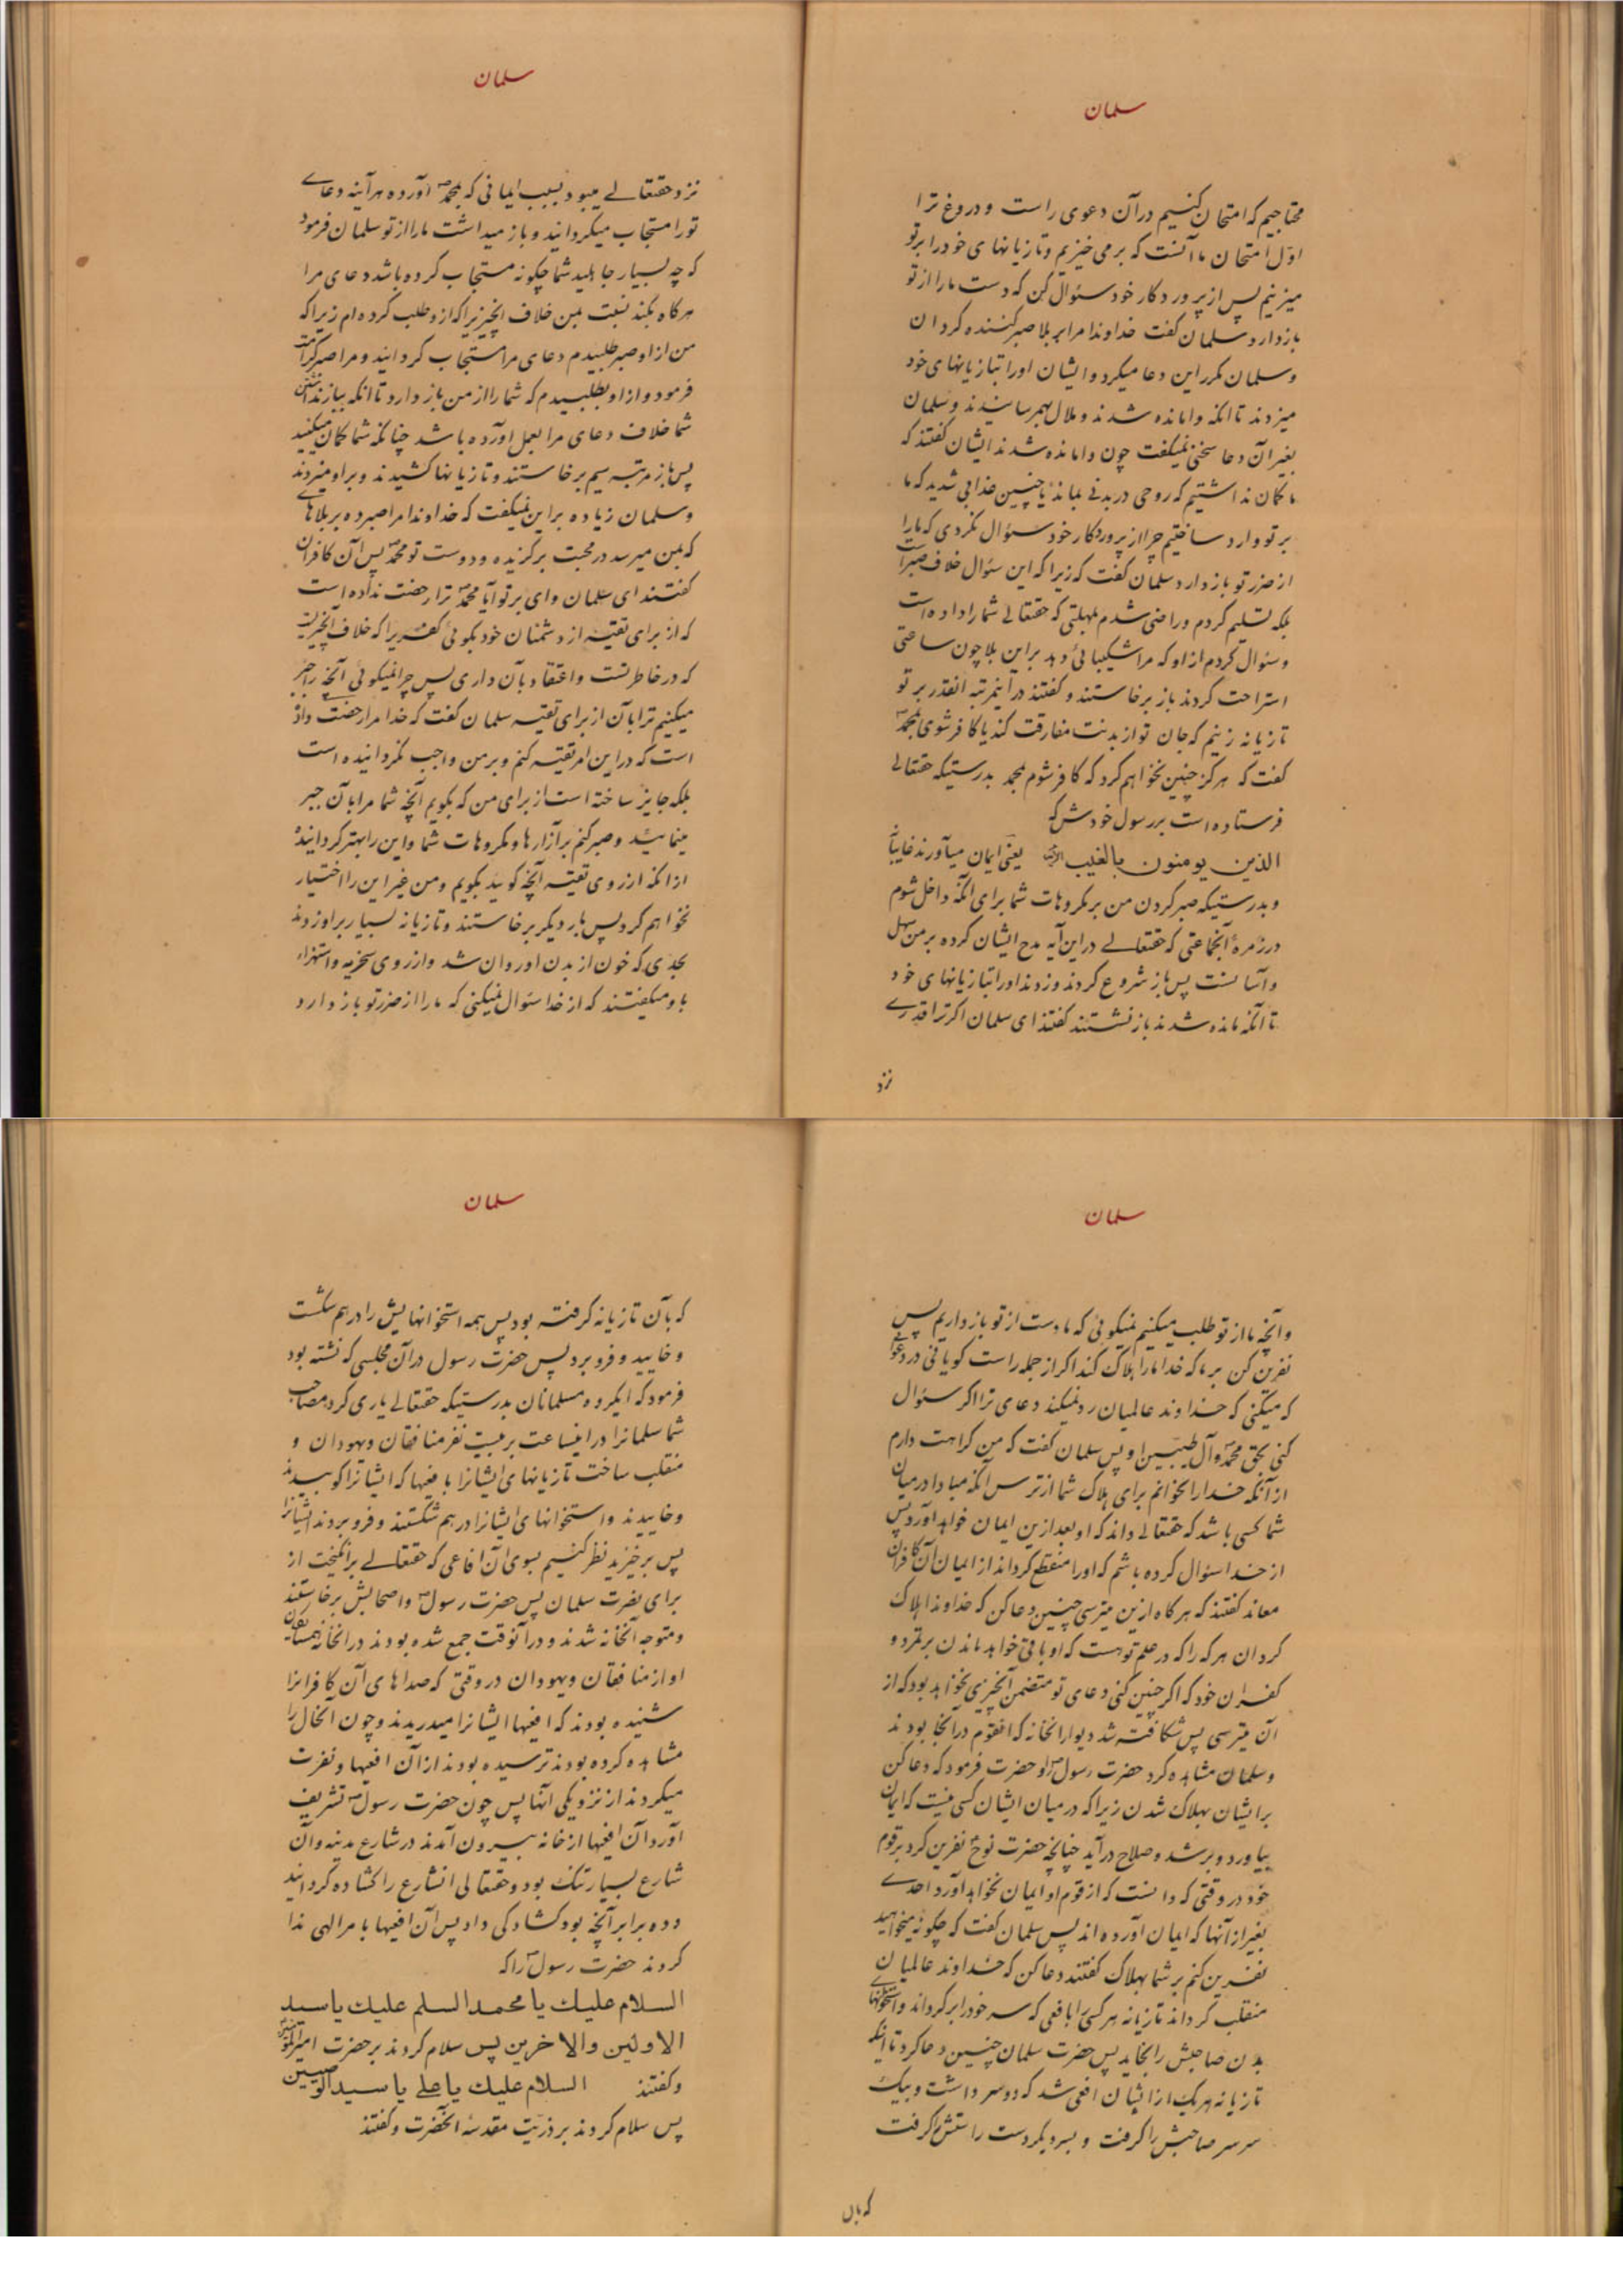 سلمان
محتاجیم که امتحان کنیم در آن دعوی راست و دروغ ترا
اول امتحان ما آنست که برمی خیزیم و تازیانهای خود را بر تو
میزنیم پس از پروردکار خود سئوال کن که دست ما را از تو
بازدارد سلمان کفت خداوندا مرا بر بلا صبر کننده کردان
و سلمان مکرر این دعا میکرد و ایشان او را بتازیانهای خود
میزدند تا آنکه وامانده شدند و ملال بهمرسانیدند و سلمان
بغیر آن دعا سخنی نمیکفت چون وامانده شدند ایشان کفتند که
ما کمان نداشتیم که روحی در بدنی بماند با چنین عذابی شدید که ما
بر تو وارد ساختیم چرا از پروردکار خود سئوال نکردی که ما را
از ضرر تو بازدارد سلمان کفت که زیرا که این سئوال خلاف صبر است
بلکه تسلیم کردم و راضی شدم بمهلتی که حقتعالی شما را داده است
و سئوال کردم از او که مرا شکیبائی دهد بر این بلا چون ساعتی
استراحت کردند باز برخاستند و کفتند در اینمرتبه آنقدر بر تو
تازیانه زنیم که جان تو از بدنت مفارقت کند یا کافر شوی بمحمدؐ
کفت که هرکز چنین نخواهم کرد که کافر شوم بمحمد بدرستیکه حقتعالی
فرستاده است بر رسول خودش که
الذین یومنون بالغیب الآیه یعنی ایمان میآورند غایبانه
و بدرستیکه صبر کردن من بر مکروهات شما برای آنکه داخل شوم
در زمرهٔ آنجماعتی که حقتعالی در این آیه مدح ایشان کرده بر من سهل
و آسانست پس باز شروع کردند و زدند او را بتازیانهای خود
تا آنکه مانده شدند باز نشستند کفتند ای سلمان اکر ترا قدری
نزد
سلمان
نزد حقتعالی میبود بسبب ایمانی که بمحمدؐ آورده هرآینه دعای
تو را مستجاب میکردانید و باز میداشت ما را از تو سلمان فرمود
که چه بسیار جاهلید شما چکونه مستجاب کرده باشد دعای مرا
هرکاه بکند نسبت بمن خلاف آنچیزیرا که از و طلب کرده ام زیرا که
من از او صبر طلبیدم دعای مرا مستجاب کردانید و مرا صبر کرامت
فرمود و از او نطلبیدم که شما را از من بازدارد تا آنکه ببازنداشتن
شما خلاف دعای مرا بعمل آورده باشد چنانکه شما کمان میکنید
پس باز مرتبه سیم برخاستند و تازیانها کشیدند و بر او میزدند
و سلمان زیاده بر این نمیکفت که خداوندا مرا صبر ده بر بلاهای
که بمن میرسد در محبت برکزیده و دوست تو محمدؐ پس آن کافران
کفتند ای سلمان وای بر تو آیا محمدؐ ترا رخصت نداده است
که از برای تقیّه از دشمنان خود بکوئی کفریرا که خلاف آنچیزیست
که در خاطر تست و اعتقاد بآن داری پس چرا نمیکوئی آنچه را جبر
میکنیم ترا بآن از برای تقیه سلمان کفت که خدا مرا رخصت داده
است که در این امر تقیه کنم و بر من واجب نکردانیده است
بلکه جایز ساخته است از برای من که نکویم آنچه شما مرا بآن جبر
مینمائید و صبر کنم بر آزارها و مکروهات شما و این را بهتر کردانیده
از آنکه از روی تقیّه آنچه کوئید بکویم و من غیر این را اختیار
نخواهم کرد پس بار دیکر برخاستند و تازیانه بسیار بر او زدند
بحدی که خون از بدن او روان شد و از روی سخریه و استهزاء
باو میکفتند که از خدا سئوال نمیکنی که ما را از ضرر تو بازدارد
سلمان
و آنچه ما از تو طلب میکنیم نمیکوئی که ما دست از تو بازداریم پس
نفرین کن بر ما که خدا ما را هلاک کند اکر از جمله راست کویانی در دعوائی
که میکنی که خداوند عالمیان رد نمیکند دعای ترا اکر سئوال
کنی بحق محمدؐ و آل طیبین او پس سلمان کفت که من کراهت دارم
از آنکه خدا را بخوانم برای هلاک شما از ترس آنکه مبادا در میان
شما کسی باشد که حقتعالی داند که او بعد ازین ایمان خواهد آورد پس
از خدا سئوال کرده باشم که او را منقطع کرداند از ایمان آن کافران
معاند کفتند که هرکاه ازین میترسی چنین دعا کن که خداوندا هلاک
کردان هر که را که در علم تو هست که او باقی خواهد ماندن بر تمرد و
کفران خود که اکر چنین کنی دعای تو متضمن آنچیزی نخواهد بود که از
آن میترسی پس شکافته شد دیوار آنخانه که آنقوم در آنجا بودند
و سلمان مشاهده کرد حضرت رسولؐ را و حضرت فرمود که دعا کن
بر ایشان بهلاک شدن زیرا که در میان ایشان کسی نیست که ایمان
بیاورد و برشد و صلاح درآید چنانچه حضرت نوحؑ نفرین کرد بر قوم
خود در وقتی که دانست که از قوم او ایمان نخواهد آورد احدی
بغیر از آنها که ایمان آورده اند پس سلمان کفت که چکونه میخواهید
نفرین کنم بر شما بهلاک کفتند دعا کن که خداوند عالمیان
منقلب کرداند تازیانه هر کسی را بافعی که سر خود را برکرداند و استخوانهای
بدن صاحبش را بخاید پس حضرت سلمان چنین دعا کرد تا آنکه
تازیانه هر یک از ایشان افعی شد که دو سر داشت و بیک
سر سر صاحبش را کرفت و بسر دیکر دست راستش را کرفت
که بآن
سلمان
که بآن تازیانه کرفته بود پس همه استخوانهایش را درهم شکست
و خایید و فرو برد پس حضرت رسول در آن مجلسی که نشسته بود
فرمود که ایکروه مسلمانان بدرستیکه حقتعالی یاری کرد مصاحب
شما سلمانرا در اینساعت بر بیست نفر منافقان و یهودان و
منقلب ساخت تازیانهای ایشانرا بافعیها که ایشانرا کوبیدند
و خاییدند و استخوانهای ایشانرا درهم شکستند و فرو بردند ایشانرا
پس برخیزید نظر کنیم بسوی آن افاعی که حقتعالی برانکیخت از
برای نصرت سلمان پس حضرت رسولؐ و اصحابش برخاستند
و متوجه آنخانه شدند و در آنوقت جمع شده بودند در آنخانه همسایکان
او از منافقان و یهودان در وقتی که صداهای آن کافرانرا
شنیده بودند که افعیها ایشانرا میدریدند و چون آنحال را
مشاهده کرده بودند ترسیده بودند از آن افعیها و نفرت
میکردند از نزدیکی آنها پس چون حضرت رسولؐ تشریف
آورد آن افعیها از خانه بیرون آمدند در شارع مدینه و آن
شارع بسیار تنک بود و حقتعالی آنشارع را کشاده کردانید
و ده برابر آنچه بود کشادکی داد پس آن افعیها بامر الهی ندا
کردند حضرت رسولؐ را که
السلام علیك یا محمد السلم علیك یا سید
الاولین والاخرین پس سلام کردند بر حضرت امیرالمؤمنین
و کفتند السلام علیك یا علی یا سید الوصیین
پس سلام کردند بر ذریّت مقدسهٔ آنحضرت و کفتند